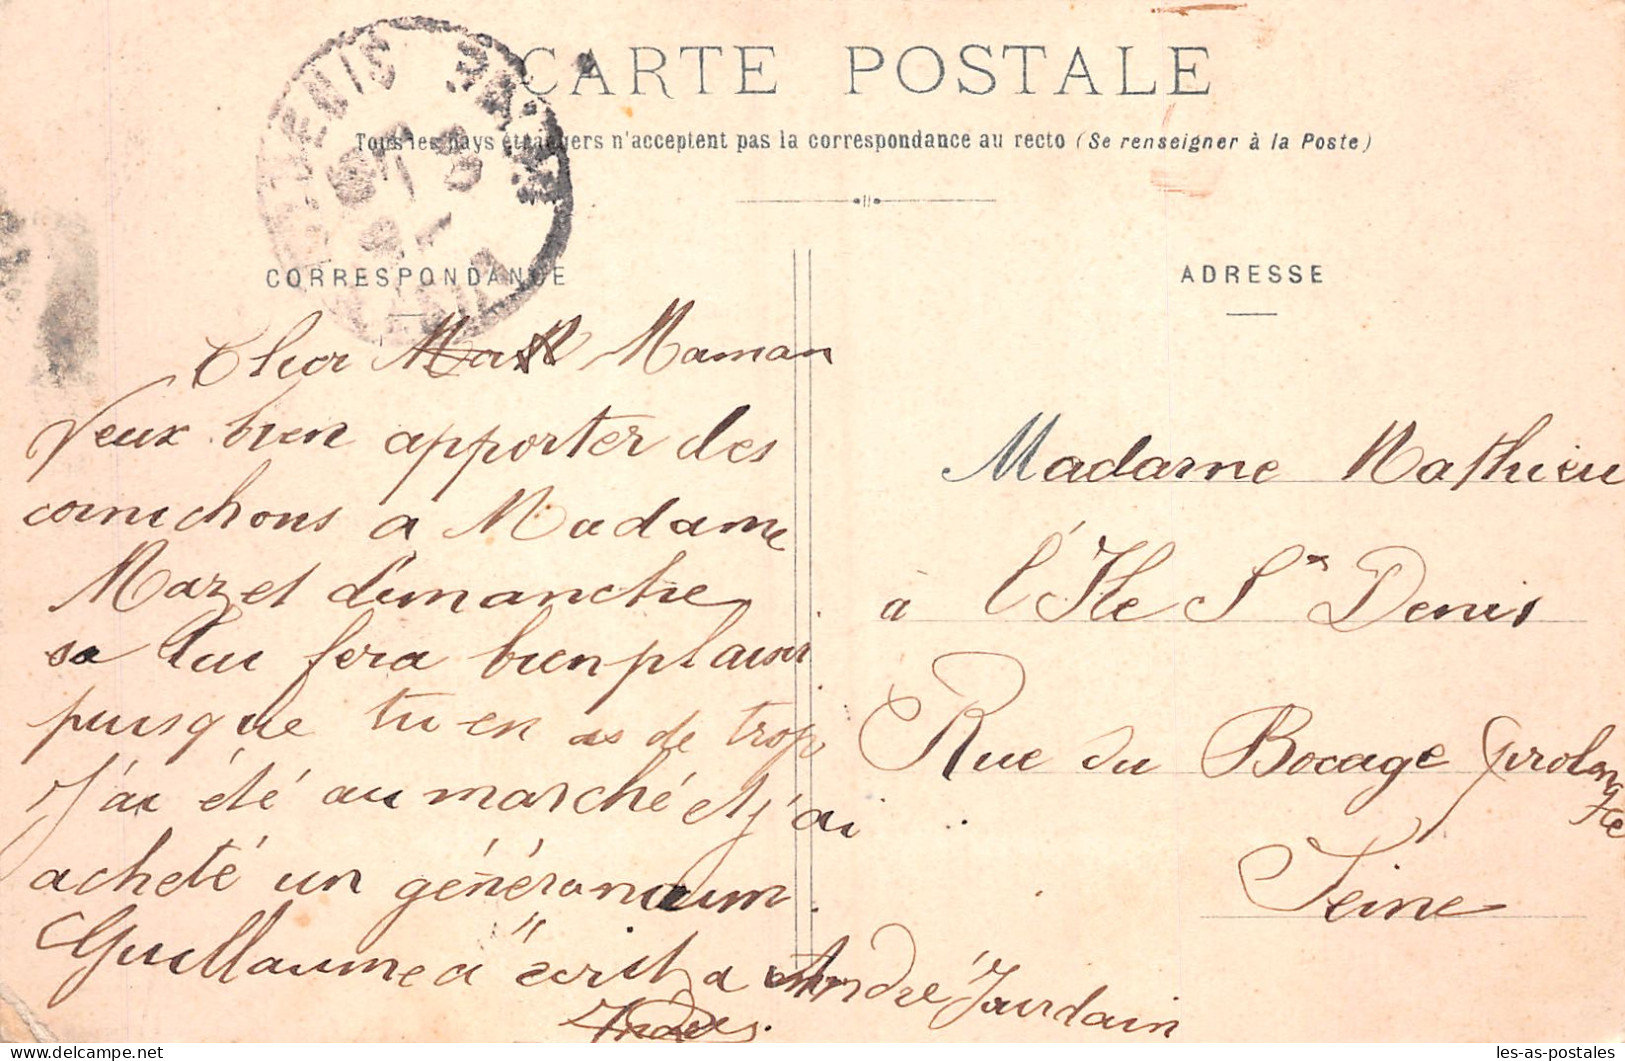 CARTE POSTALE
Tous les pays étrangers n'acceptent pas la correspondance au recto (Se renseigner à la Poste)
CORRESPONDANCE
Cher Maman
Veux bien apporter des
cornichons a Madame
Mazet dimanche
sa lui fera bien plaisir
puisque tu en as de trop
J'ai été au marché et j'ai
acheté un généranaum
Guillaume a écrit a André Jourdain
ADRESSE
Madame Mathieu
à l'Ile St Denis
Rue du Bocage prolongée
Seine
les-as-postales